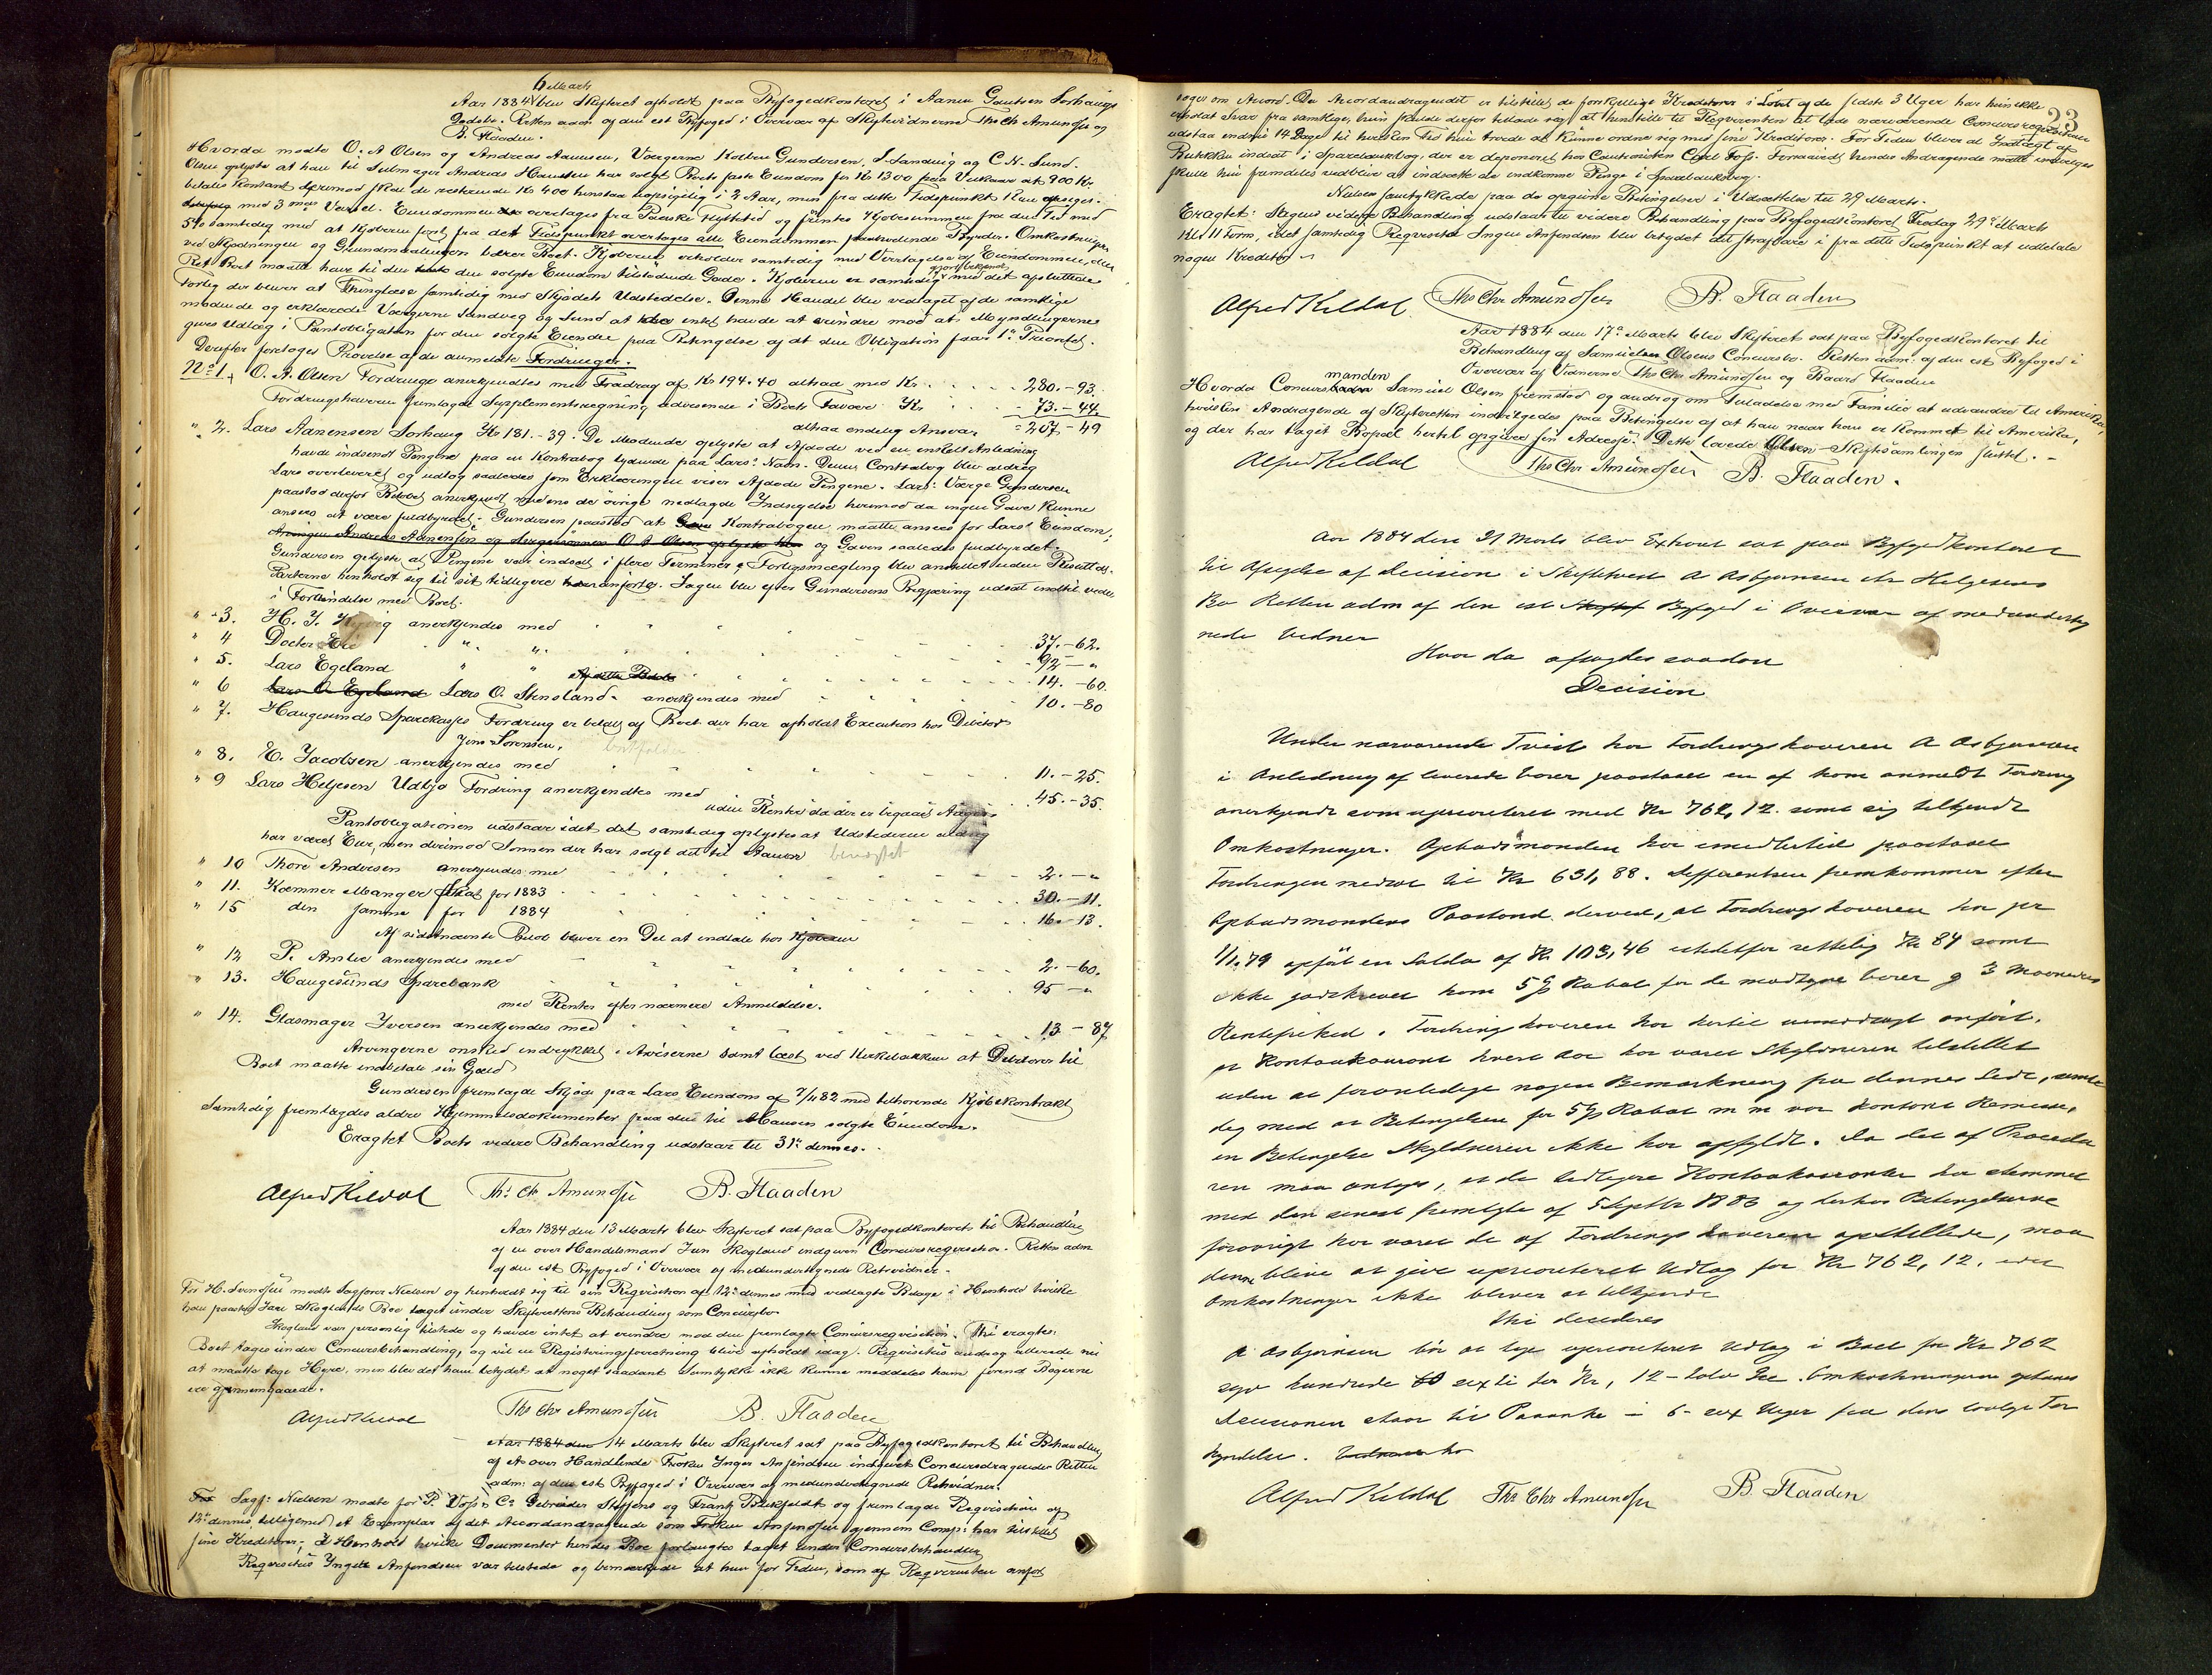 6 Marts
Aar 1884 blev Skifteret afholdt paa Byfogedkontoret i Aanen Gautsen Sørhaugs
Dødsbo. Retten adm. af den cst Byfoged i Overvær af Skiftevidnerne Ths Ch Amundsen og
B. Flaaden.
Hvorda mødte O. A Olsen og Andreas Aanensen, Værgerne Kolben Gundersen, S. Sandvig og C. N. Sund.
Olsen oplyste at han til Seilmager Andreas Hansen har solgt Boets faste Eiendom for Kr 1300 paa Vilkaar at 900 Kr.
betales kontant hvorimod skal de resterende Kr 400 henstaa uopsigelig i 2 Aar, men fra dette Tidspunkt kan opsiges
med 3 mdrs Varsel. Eiendommen overtages fra Paaske Flyttetid og forrentes Kjøbesummen fra den Tid med
5% samtidig med at Kjøberen fra det Tidspunkt overtager alle Eiendommen paahvilende Byrder. Omkostninger
ved Skjødningen og Grundmaalingen bærer Boet. Kjøberen erholder samtidig med Overtagelse af Eiendommen, den
Ret Boet maatte have til den den solgte Eiendom tilstødende Gade. Kjøberen er samtidig gjort bekjendt med det afsluttede
Forlig der bliver at Thinglæse samtidig med Skjødets Udstedelse. Denne Handel blev vedtaget af de samtlige
mødende og erklærede Værgerne Sandvig og Sund at de intet havde at erindre mod at Myndlingerne
gives Udlæg i Pantobligation for den solgte Eiendom paa Betingelse af at den Obligation faar 1ste Prioritet.
Derefter foretoges Prøvelse af de anmeldte Fordringer.
No 1. O. A. Olsen Fordringe anerkjendtes med Fradrag af Kr 194.40 altsaa med Kr. 280.-93.
Fordringshaveren fremlagde Supplementsregning udvisende i Boets Favør Kr 73.-44.
altsaa endelig Ansvar = 207-49
" 2. Lars Aanensen Sørhaug Kr 181.-39. De Mødende oplyste at Afdøde ved en enkelt Anledning
havde indsendt Pengene paa en Kontrabog lydende paa Lars' Navn. Denne Contrabog blev aldrig
Lars overleveret og udtog saaledes som Erklæringen viser Afdøde Pengene. Lars' Værge Gundersen
paastod derfor Beløbet anerkjendt medens de øvrige nedlagde Indsigelse herimod da ingen Gave kunne
ansees at være fuldbyrdet. Gundersen paastod at Kontrabogen maatte ansees for Lars' Eiendom,
og Gaven saaledes fuldbyrdet.
Gundersen oplyste at Pengene var indsat i flere Terminer. Forligsmægling blev anstillet uden Resultat.
Parterne henholdt sig til sit tidligere anførte. Sagen blev efter Gundersens Begjæring udsat indtil videre
i Forbindelse med Boet.
" 3. H. J. anerkjendes med 37.-62.
" 4 Doctor " " 92-"
" 5. Lars Egeland " " 14.-60.
" 6 Lars O. Stensland anerkjendes med 10.-80
" 7. Haugesunds Sparekasses Fordring er betalt af Boet der har afholdt Execution hos Debitor
Jens Sørensen.
" 8. E. Jacobsen anerkjendes med 11.-25.
" 9 Lars Heljesen Udbjo Fordring anerkjendtes med 45.-35.
uden Renter da der er
Pantobligationen udstaar idet det samtidig oplystes at Udstederen aldrig
har været Eier, men derimod Sønnen der har solgt det til Aanen
" 10 Thore Andersen anerkjendes med 2.-"
" 11. Kæmner Manger Skat for 1883 30.-11.
" 15 den samme for 1884 16.-13.
Af sidstnævnte Beløb bliver en Del at indtale hos Kjøberen
" 12 P. Amlie anerkjendes med 2.-60.
" 13. Haugesunds Sparebank 95-"
med Renter efter nærmere Anmeldelse.
" 14. Glasmager Iversen anerkjendes med 13-87
Arvingerne ønsked indrykket i Aviserne samt læst ved Kirkebakken at Debitorer til
Boet maatte indbetale sin Gjæld
Gundersen fremlagde Skjøde paa Lars Eiendom af 7/11 82 med tilhørende Kjøbekontrakt
Samtidig fremlagdes ældre Hjemmelsdokumenter paa den til Hansen solgte Eiendom.
Eragtet Boets videre Behandling udstaar til 31te dennes.
Alfred Kildal Ths Ch Amundsen B. Flaaden
Aar 1884 den 13 Marts blev Skifteret sat paa Byfogedkontoret til Behandling
af en over Handelsmand Jens Skogland indgiven Concursreqvisition. Retten adm
af den cst Byfoged i Overvær af medundertegnede Retsvidner.
For H. Svendsen mødte Sagfører Nielsen og henholdt sig til sin Reqvisition af 12te dennes med vedlagte Bilage i Henhold hvortil
han paastod Jens Skoglands Boe taget under Skifterettens Behandling som Concursbo.
Skogland var personlig tilstede og havde intet at erindre mod den fremlagte Concursreqvisition. Thi eragtes:
Boet tages under Concursbehandling, og vil en Registreringsforretning blive afholdt idag. Reqvisitus androg allerede nu
at maatte tage Hyre, men blev det ham betydet at noget saadant Samtykke ikke kunne meddeles ham førend Bøgerne
ere gjennemgaaede.
Alfred Kildal Ths Chr Amundsen B. Flaaden
Aar 1884 den 14 Marts blev Skifteret sat paa Byfogedkontoret til Behandling
af over Handlende Frøken Inger Anfindsen indgivet Concursdragende. Retten
adm: af den cst Byfoged i Overvær af medundertegnede Retsvidner.
Sagf: Nielsen mødte for P. Voss & Co Gebrüder Steffens og Frantz Blikfeldt og fremlagde Reqvisition af
12te dennes tilligemed et Exemplar af det Accordandragende som Frøken Anfindsen gjennem Comp: har tilstillet
sine Kreditorer; i Henhold hvilke Documenter hendes Boe forlangtes taget under Concursbehandling
Reqvisitus Inger Anfindsen var tilstede og bemærkede at hun for Tiden, som af Reqvirenten anført
23
søger om Accord. Da Accordandragendet er tilstillet de forskjellige Kreditorer i Løbet af de sidste 3 Uger har hun ikke
erholdt Svar fra samtlige, hun skulde derfor tillade sig at henstille til Reqvirenten at lade nærværende Concursreqvisition
udstaa endnu i 14 Dage til hvilken Tid hun troede at kunne ordne sig med sine Kreditorer. For Tiden bliver al Indtægt af
Butikken indsat i Sparebankbog, der er deponeret hos Cautionisten Carl Foss. Forsaavidt hendes Andragende maatte imødekommes
skulle hun fremdeles vedblive at indsætte de indkomne Penge i Sparebankbog.
Nielsen samtykkede paa de opgivne Betingelser i Udsættelse til 29 Marts.
Eragtet: Sagens videre Behandling udstaar til videre Behandling paa Byfogedkontoret Fredag 29de Marts
Kl 11 Form, idet samtidig Reqvisita Inger Anfindsen blev betydet det strafbare i fra dette Tidspunkt at udbetale
nogen Kreditor.
Alfred Kildal. Ths Chr Amundsen B. Flaaden
Aar 1884 den 17de Marts blev Skifteret sat paa Byfogedkontoret til
Behandling af Samuel Olsens Concursbo. Retten adm: af den cst Byfoged i
Overvær af Vidnerne Ths Chr Amundsen og Baard Flaaden
Hvorda Concursmanden Samuel Olsen fremstod og androg om Tilladelse med Familie at udvandre til Amerika,
hvilken Andragende af Skifteretten indvilgedes paa Betingelse af at han naar han er kommet til Amerika,
og der har taget Bopæl hertil opgiver sin Adresse. Dette lovede Olsen - Skiftesamlingen sluttet. -
Alfred Kildal Ths Chr Amundsen B. Flaaden.
Aar 1884 den 21 Marts blev Extraret sat paa Byfogedkontoret
til Afsigelse af Decision i Skiftetvist A Asbjørnsen ctr Helgesens
Bo Retten adm af den cst Byfoged i Overvær af medunderteg
nede Vidner
Hvor da afsagdes saadan
Decision
Under nærværende Tvist har Fordringshaveren A Asbjørnsen
i Anledning af leverede Varer paastaaet en af ham anmeldt Fordring
anerkjendt som uprioriteret med Kr 762,12. samt sig tilkjendt
Omkostninger. Opbudsmanden har imidlertid paastaaet
Fordringen nedsat til Kr 631,88. Differentsen fremkommer efter
Opbudsmandens Paastand derved, at Fordringshaveren har pr
1/1.79 opført en Saldo af Kr. 103,46 istedetfor rettelig Kr 84 samt
ikke godskrevet ham 5% Rabat for de modtagne Varer og 3 Maaneders
Rentefrihed. Fordringshaveren har hertil uimodsagt anført,
at Kontokurant hvert Aar har været Skyldneren tilstillet
uden at foranledige nogen Bemærkning fra dennes Side, samti
dig med at Betingelsen for 5% Rabat m m var kontant Remisse,
en Betingelse Skyldneren ikke har opfyldt. Da det af Procedu
ren maa antages, at de tidligere Kontokuranter har stemmet
med den senest fremlagte af 5 Septbr 1883 og derhos Betingelserne
forøvrigt har været de af Fordringshaveren opstillede, maa
denne blive at give uprioriteret Udlæg for Kr 762,12. idet
Omkostninger ikke bliver at tilkjende
Thi decideres
A Asbjørnsen bør at tage uprioriteret Udlæg i Boet for Kr 762
syv hundrede sexti to Kr, 12 - tolv Øre. Omkostningerne ophæves
Decisionen staar til Paaanke i 6 - sex Uger fra dens lovlige For
kyndelse.
Alfred Kildal Ths Chr Amundsen B. Flaaden